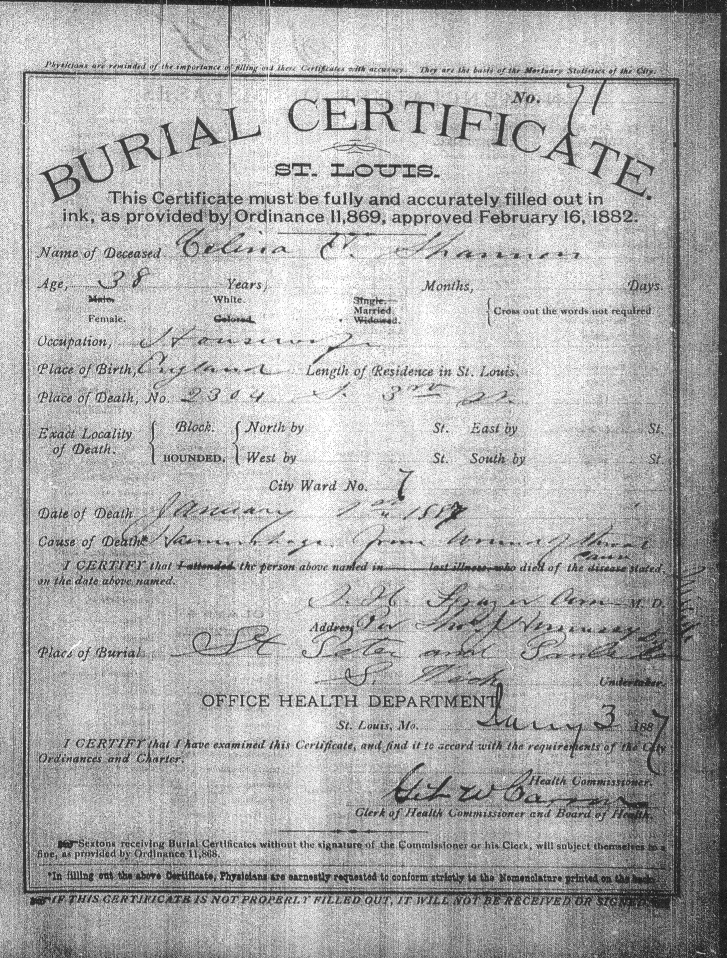 Physicians are reminded of the importance of filling out these Certificates with accuracy. They are the basis of the Mortuary Statistics of the City.
No. 71
BURIAL CERTIFICATE.
ST. LOUIS.
This Certificate must be fully and accurately filled out in
ink, as provided by Ordinance 11,869, approved February 16, 1882.
Name of Deceased Celina V. Shannon
Age, 38 Years, Months, Days.
Male. White. Single.
Married. Cross out the words not required.
Female. Colored. Widowed.
Occupation, Housewife
Place of Birth, England Length of Residence in St. Louis.
Place of Death, No. 2304 S. 3rd St.
Exact Locality Block. North by St. East by St.
of Death. BOUNDED. West by St. South by St.
City Ward No. 7
Date of Death January 1st 1887
Cause of Death* Hemorrhage from wound of throat
I CERTIFY that I attended the person above named in last illness, who died of the disease stated, cause
on the date above named.
M. D.
Address Per
Place of Burial St Peter and Pauls Cem
S. Undertaker.
OFFICE HEALTH DEPARTMENT
St. Louis, Mo. Jany 3 1887
I CERTIFY that I have examined this Certificate, and find it to accord with the requirements of the City
Ordinances and Charter.
Health Commissioner.
Clerk of Health Commissioner and Board of Health.
Sextons receiving Burial Certificates without the signature of the Commissioner or his Clerk, will subject themselves to a
fine, as provided by Ordinance 11,868.
*In filling out the above Certificate, Physicians are earnestly requested to conform strictly to the Nomenclature printed on the back.
IF THIS CERTIFICATE IS NOT PROPERLY FILLED OUT, IT WILL NOT BE RECEIVED OR SIGNED.